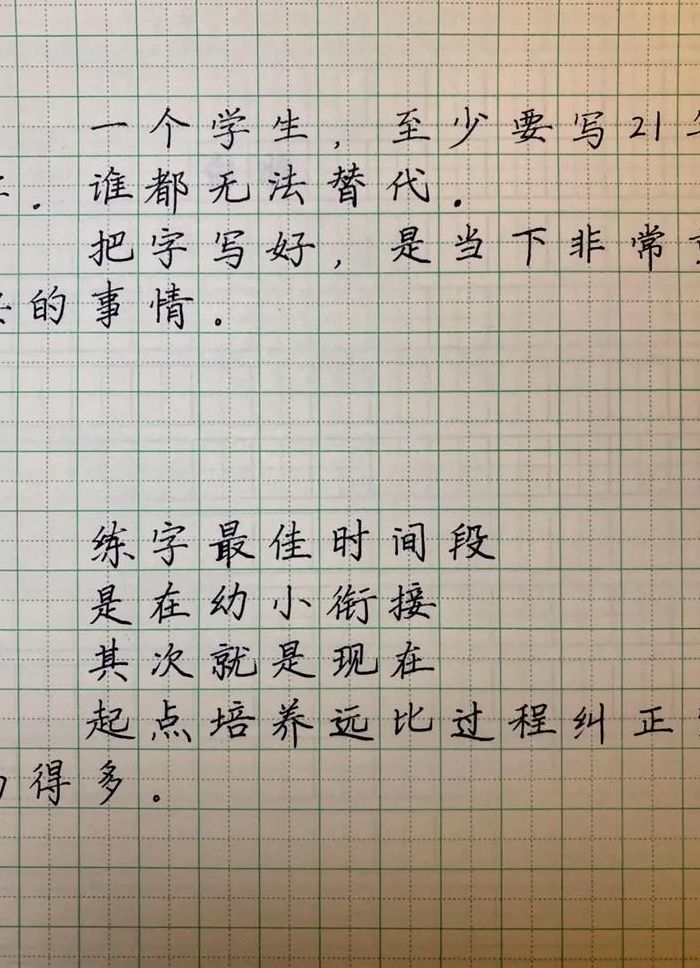 一个学生，至少要写21
．谁都无法替代．
把字写好，是当下非常
的事情。
练字最佳时间段
是在幼小衔接
其次就是现在
起点培养远比过程纠正
得多。